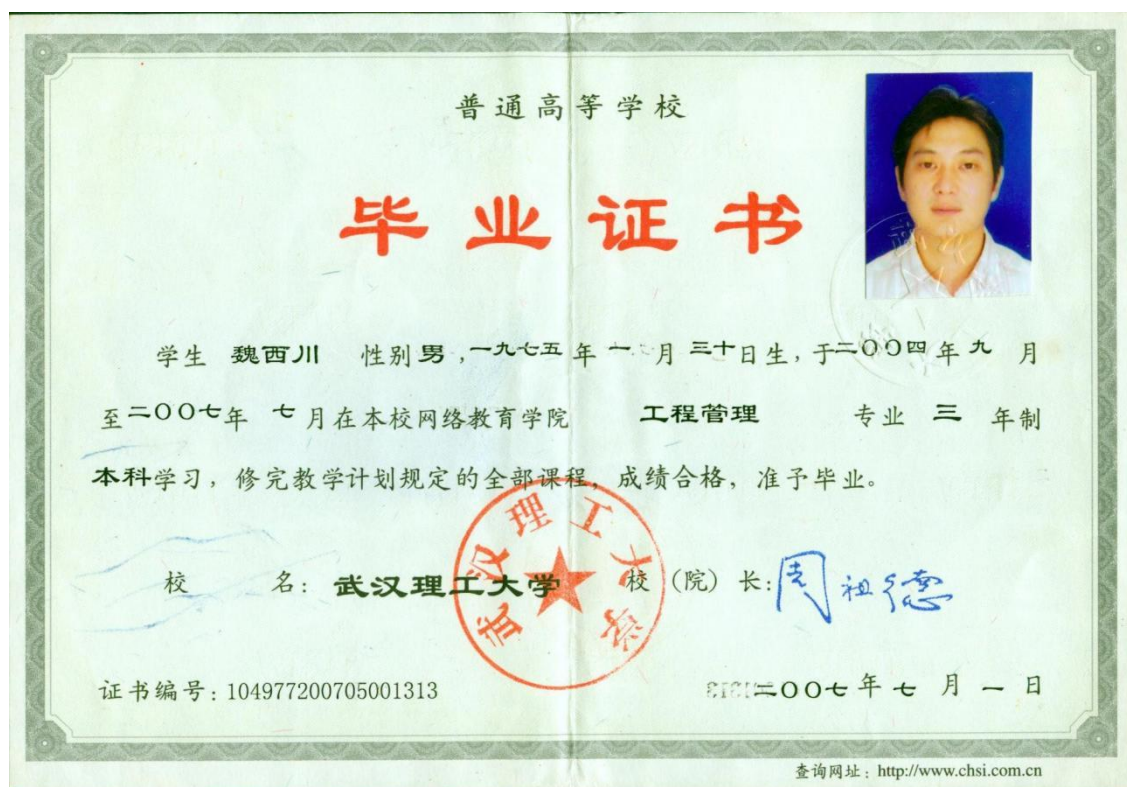 普通高等学校
毕业证书
学生 魏西川 性别 男，一九七五年一月三十日生，于二〇〇四年九月
至二〇〇七年七月在本校网络教育学院 工程管理 专业 三 年制
本科学习，修完教学计划规定的全部课程，成绩合格，准予毕业。
校 名：武汉理工大学 校（院）长：周祖德
武汉理工大学
证书编号：104977200705001313 二〇〇七年七月一日
查询网址：http://www.chsi.com.cn